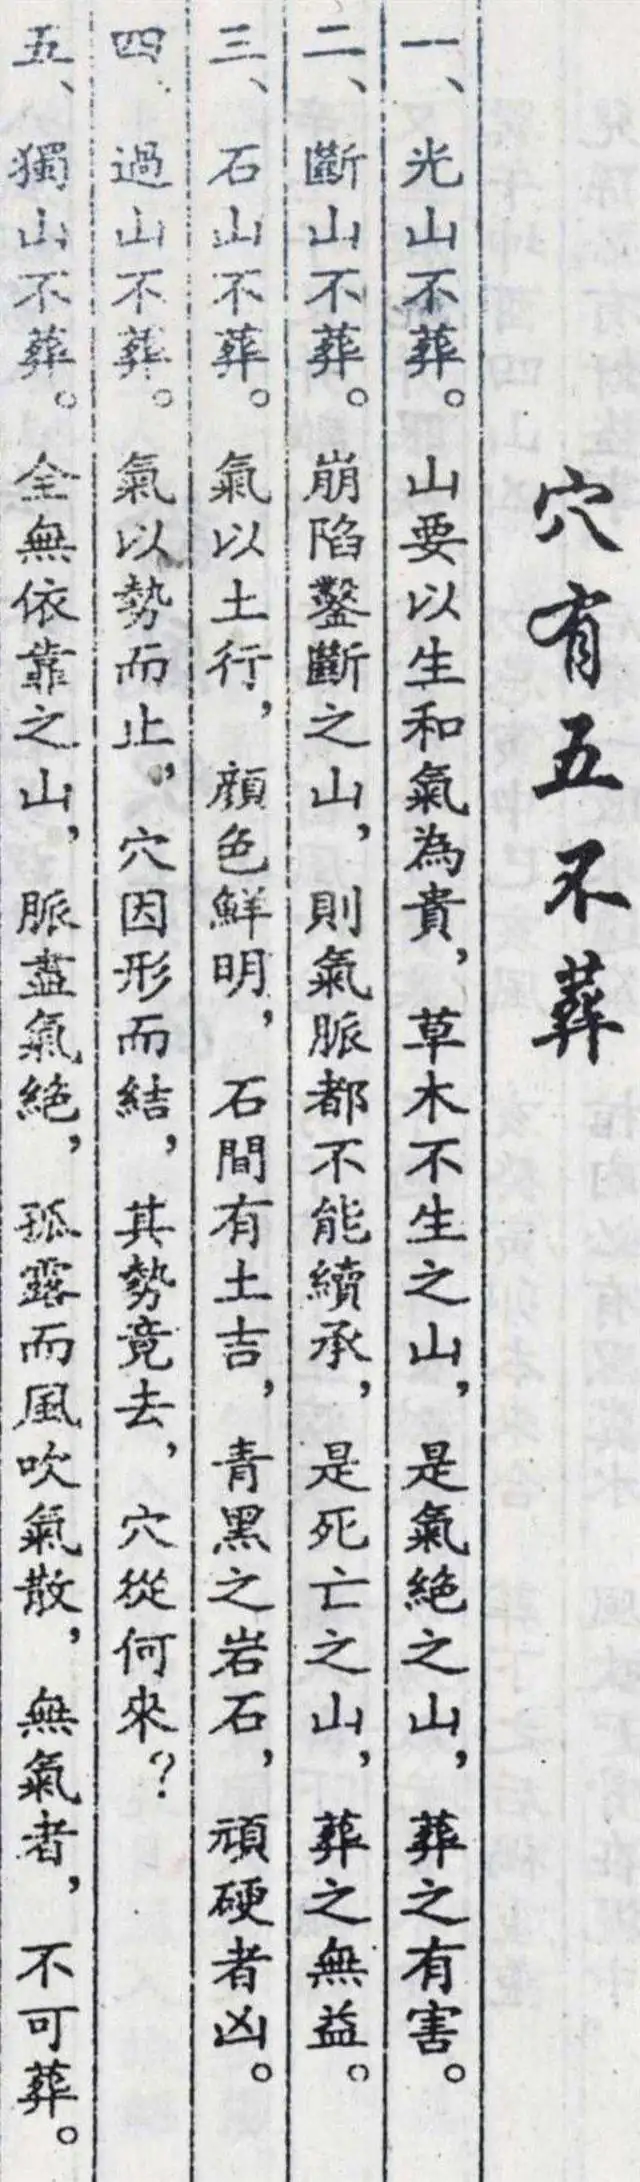 穴有五不葬
一、光山不葬。山要以生和氣為貴，草木不生之山，是氣絕之山，葬之有害。
二、斷山不葬。崩陷鑿斷之山，則氣脈都不能續承，是死亡之山，葬之無益。
三、石山不葬。氣以土行，顏色鮮明，石間有土吉，青黑之岩石，頑硬者凶。
四、過山不葬。氣以勢而止，穴因形而結，其勢竟去，穴從何來？
五、獨山不葬。全無依靠之山，脈盡氣絕，孤露而風吹氣散，無氣者，不可葬。